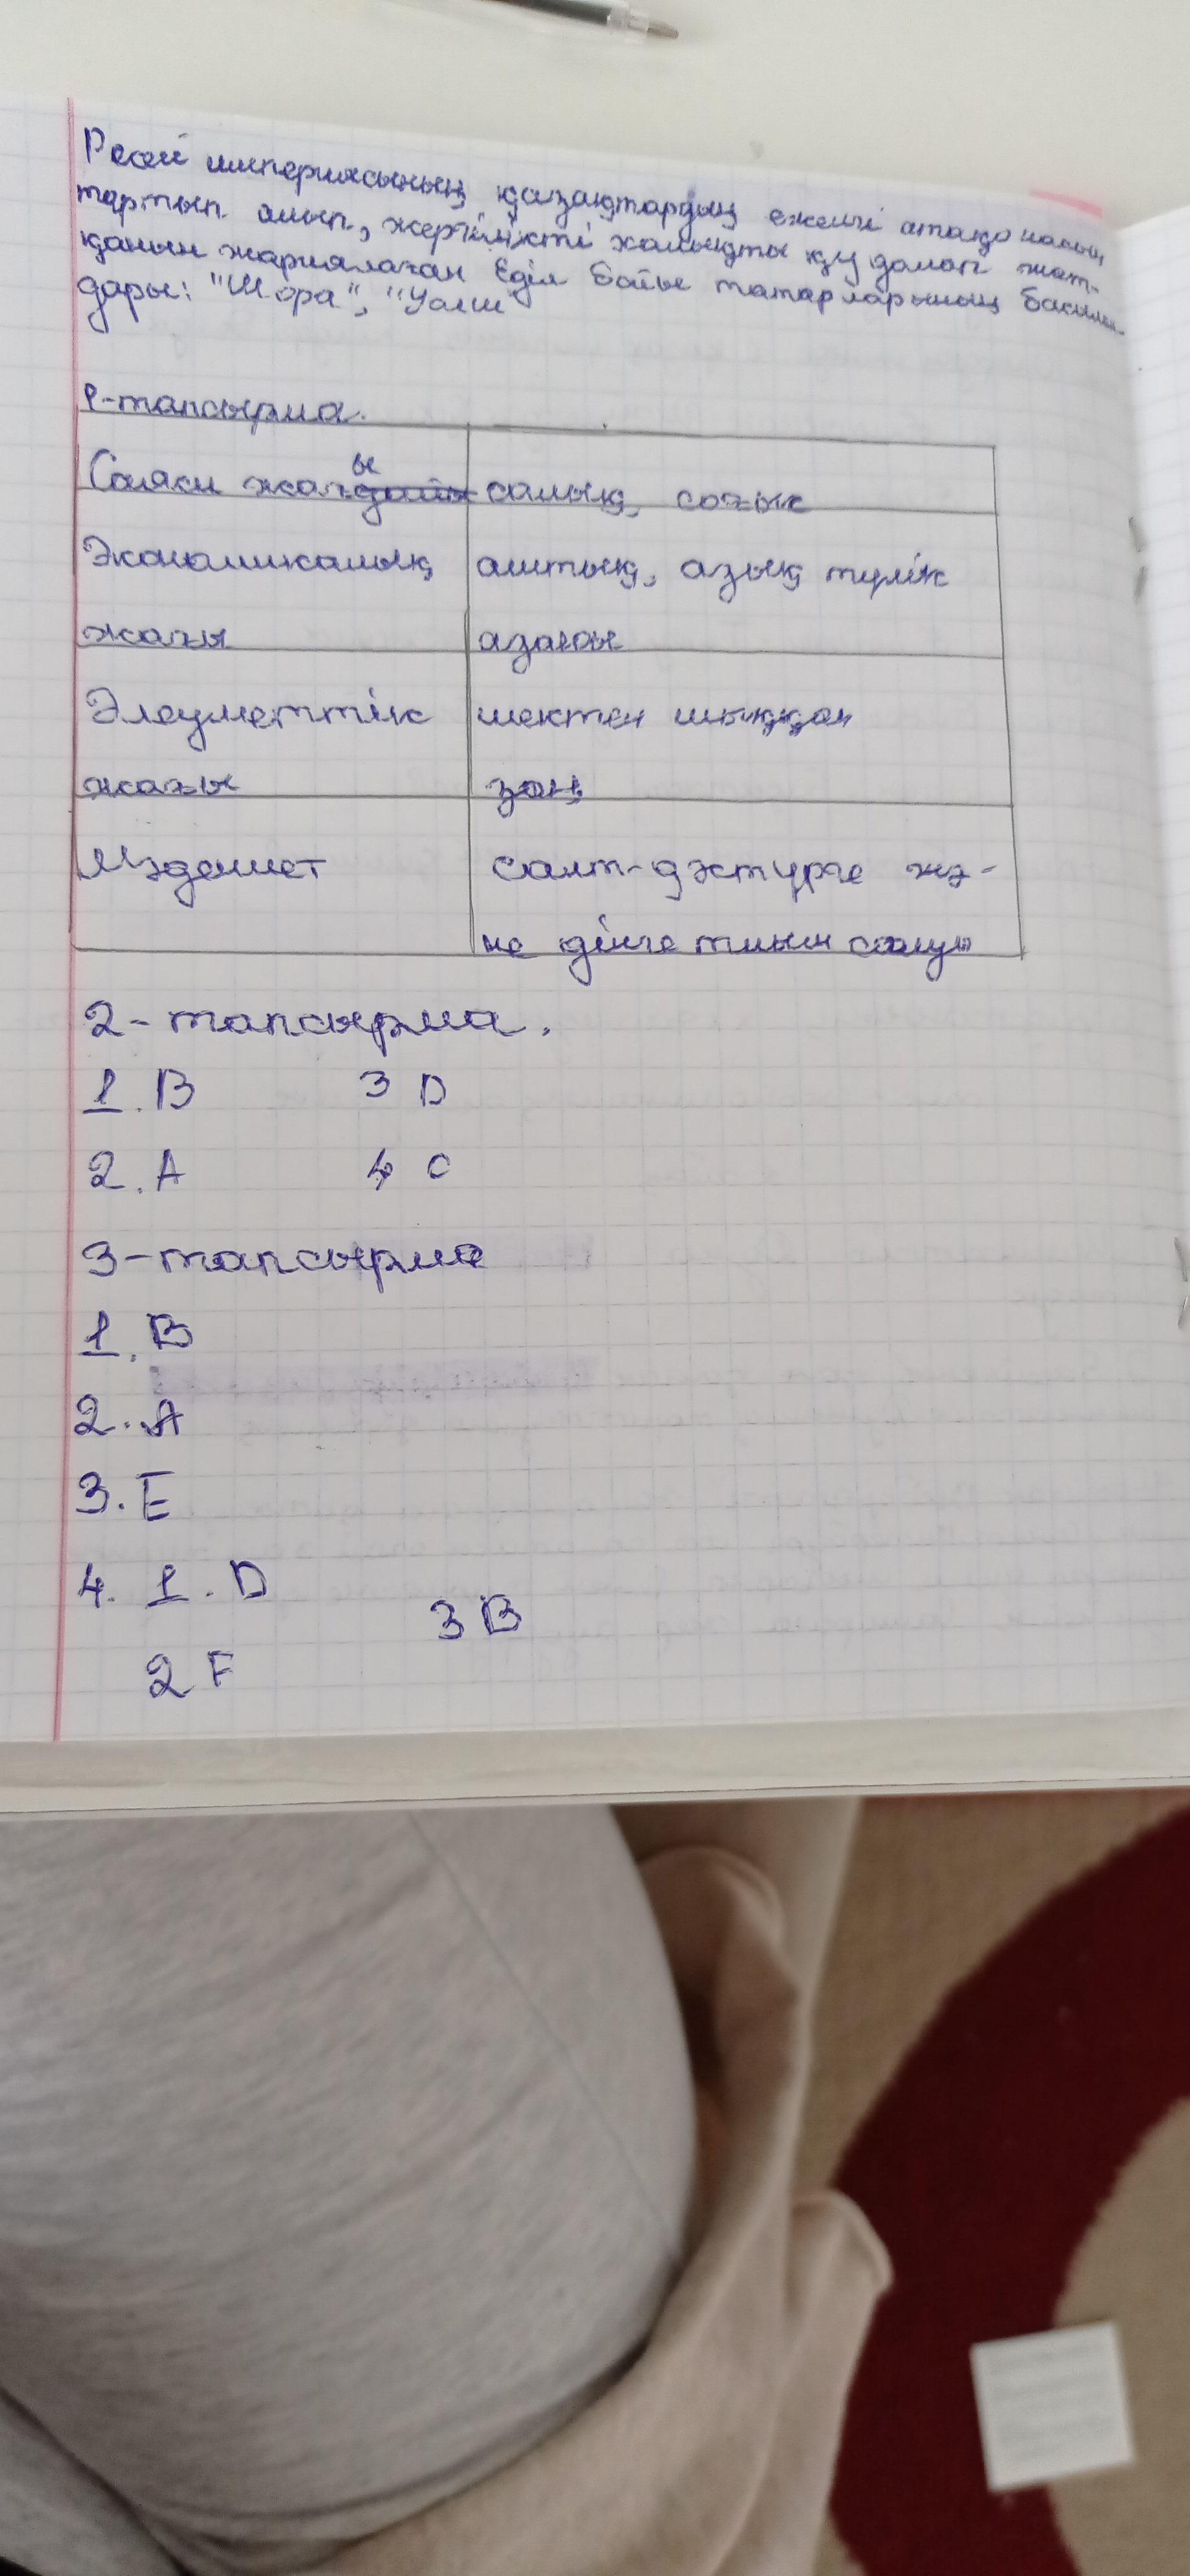 Ресей империясының қазақтардың ежелгі атақонысын
тартып алып, жергілікті халықты қудалап жат-
қанын жариялаған Еділ бойы татарларының басылым-
дары: "Шора", "Уолш"
1-тапсырма.
Саяси жағы салық, соғыс
Экономикалық аштық, азық түлік
жағы азаюы
Әлеуметтік шектен шыққан
жағы заң
Мәдениет салт-дәстүрге жә-
не дінге тиым салу
2-тапсырма.
1. В 3 D
2. А 4 С
3-тапсырма
1. В
2. А
3. Е
4. 1. D 3 В
2 F